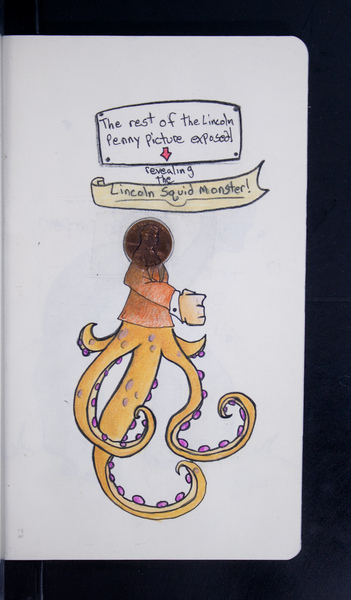 The rest of the Lincoln
Penny Picture exposed
revealing
the
Lincoln Squid Monster!